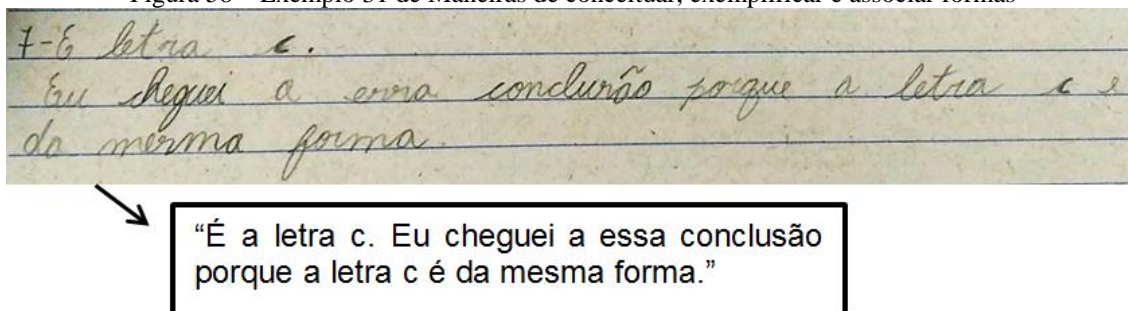 Figura 36 – Exemplo 31 de Maneiras de conceituar, exemplificar e associar formas
7-E letra c.
Eu cheguei a essa conclusão porque a letra c e
da mesma forma.
“É a letra c. Eu cheguei a essa conclusão
porque a letra c é da mesma forma.”